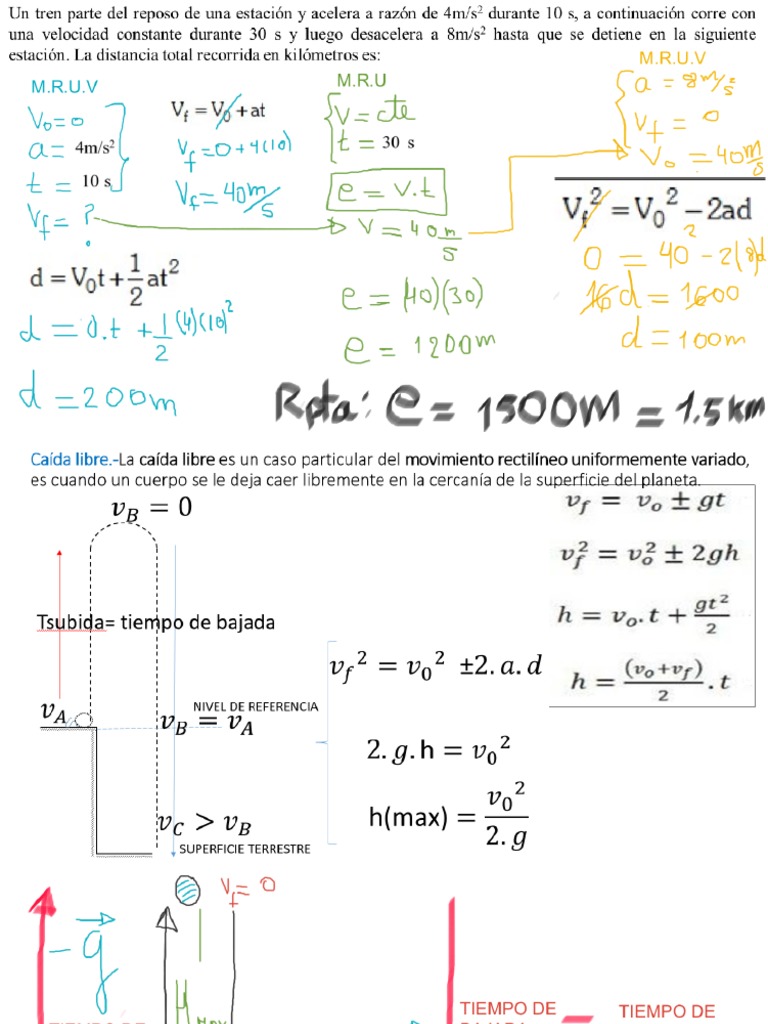 Un tren parte del reposo de una estación y acelera a razón de 4m/s² durante 10 s, a continuación corre con
una velocidad constante durante 30 s y luego desacelera a 8m/s² hasta que se detiene en la siguiente
estación. La distancia total recorrida en kilómetros es:
M.R.U.V
V₀=0
a= 4m/s²
t = 10 s
Vf= ?
d = V₀t+1/2 at²
d = 0.t +1/2 (4)(10)²
d =200m
Vf = V₀ + at
Vf=0+4(10)
Vf=40m/s
M.R.U
V= cte
t = 30 s
e = v.t
V=40m/s
e = (40)(30)
e = 1200m
M.R.U.V
a = 8m/s²
Vf = 0
V₀ =40m/s
Vf² =V₀² −2ad
0 = 40² -2(8)d
16d=1600
d=100m
Rpta: e= 1500M =1.5km
Caída libre.-La caída libre es un caso particular del movimiento rectilíneo uniformemente variado,
es cuando un cuerpo se le deja caer libremente en la cercanía de la superficie del planeta.
v_B = 0
Tsubida= tiempo de bajada
v_A
NIVEL DE REFERENCIA
v_B = v_A
v_C > v_B
SUPERFICIE TERRESTRE
v_f² = v₀² ±2. a. d
2. g. h = v₀²
h(max) = v₀²/2. g
v_f = v_o ± gt
v_f² = v_o² ± 2gh
h = v_o. t + gt²/2
h = (v_o+v_f)/2 . t
-g
Vf= 0
H
TIEMPO DE
TIEMPO DE
=
TIEMPO DE